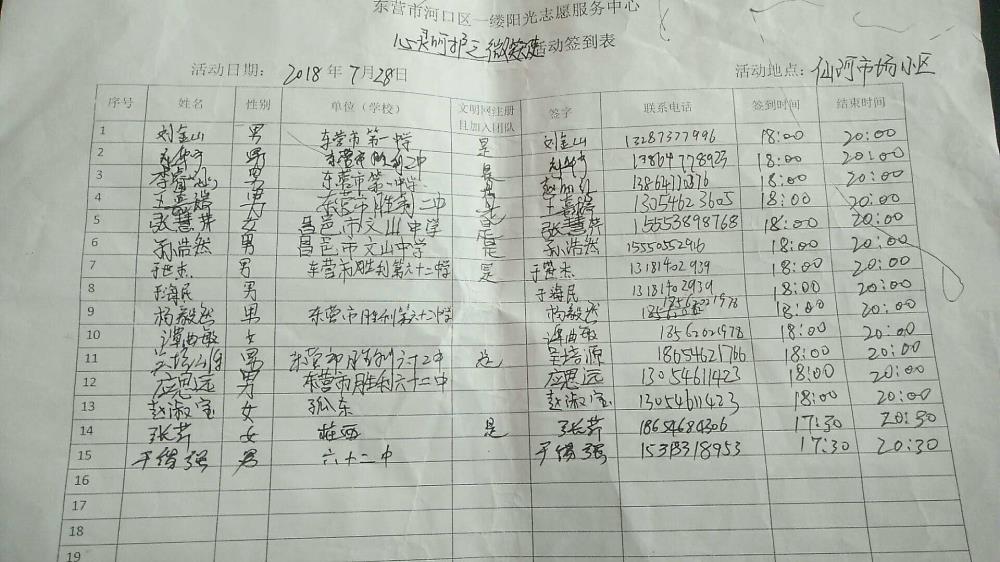 东营市河口区一缕阳光志愿服务中心
心灵呵护之 活动签到表
活动日期: 2018年7月28日 活动地点: 仙河市场小区
序号 姓名 性别 单位(学校) 文明网注册且加入团队 签字 联系电话 签到时间 结束时间
1 刘金山 男 东营市第一中学 是 刘金山 13287377996 18:00 20:00
2 男 东营市胜利二中 是 13864778923 18:00 20:00
3 男 东营市第一中学 18:00 20:00
4 男 东营市胜利二中 是 13054623605 18:00 20:00
5 张慧萍 女 昌邑市文山中学 是 张慧萍 15553898768 18:00 20:00
6 孙浩然 男 昌邑市文山中学 是 孙浩然 15550552916 18:00 20:00
7 于世杰 男 东营市胜利第六十二中学 是 于世杰 13181402939 18:00 20:00
8 于海民 男 于海民 13181402939 18:00 20:00
9 杨毅然 男 东营市胜利第六十二中学 杨毅然 18562021978 18:00 20:00
10 谭曲敏 女 谭曲敏 18562021978 18:00 20:00
11 男 东营市胜利六十二中 是 吴培源 18654621766 18:00 20:00
12 应思远 男 东营市胜利六十二中 应思远 13054611423 18:00 20:00
13 赵淑宝 女 孤东 赵淑宝 13054611423 18:00 20:00
14 张芹 女 桩西 是 张芹 18654684306 17:30 20:30
15 男 六十二中 15318318953 17:30 20:30
16
17
18
19